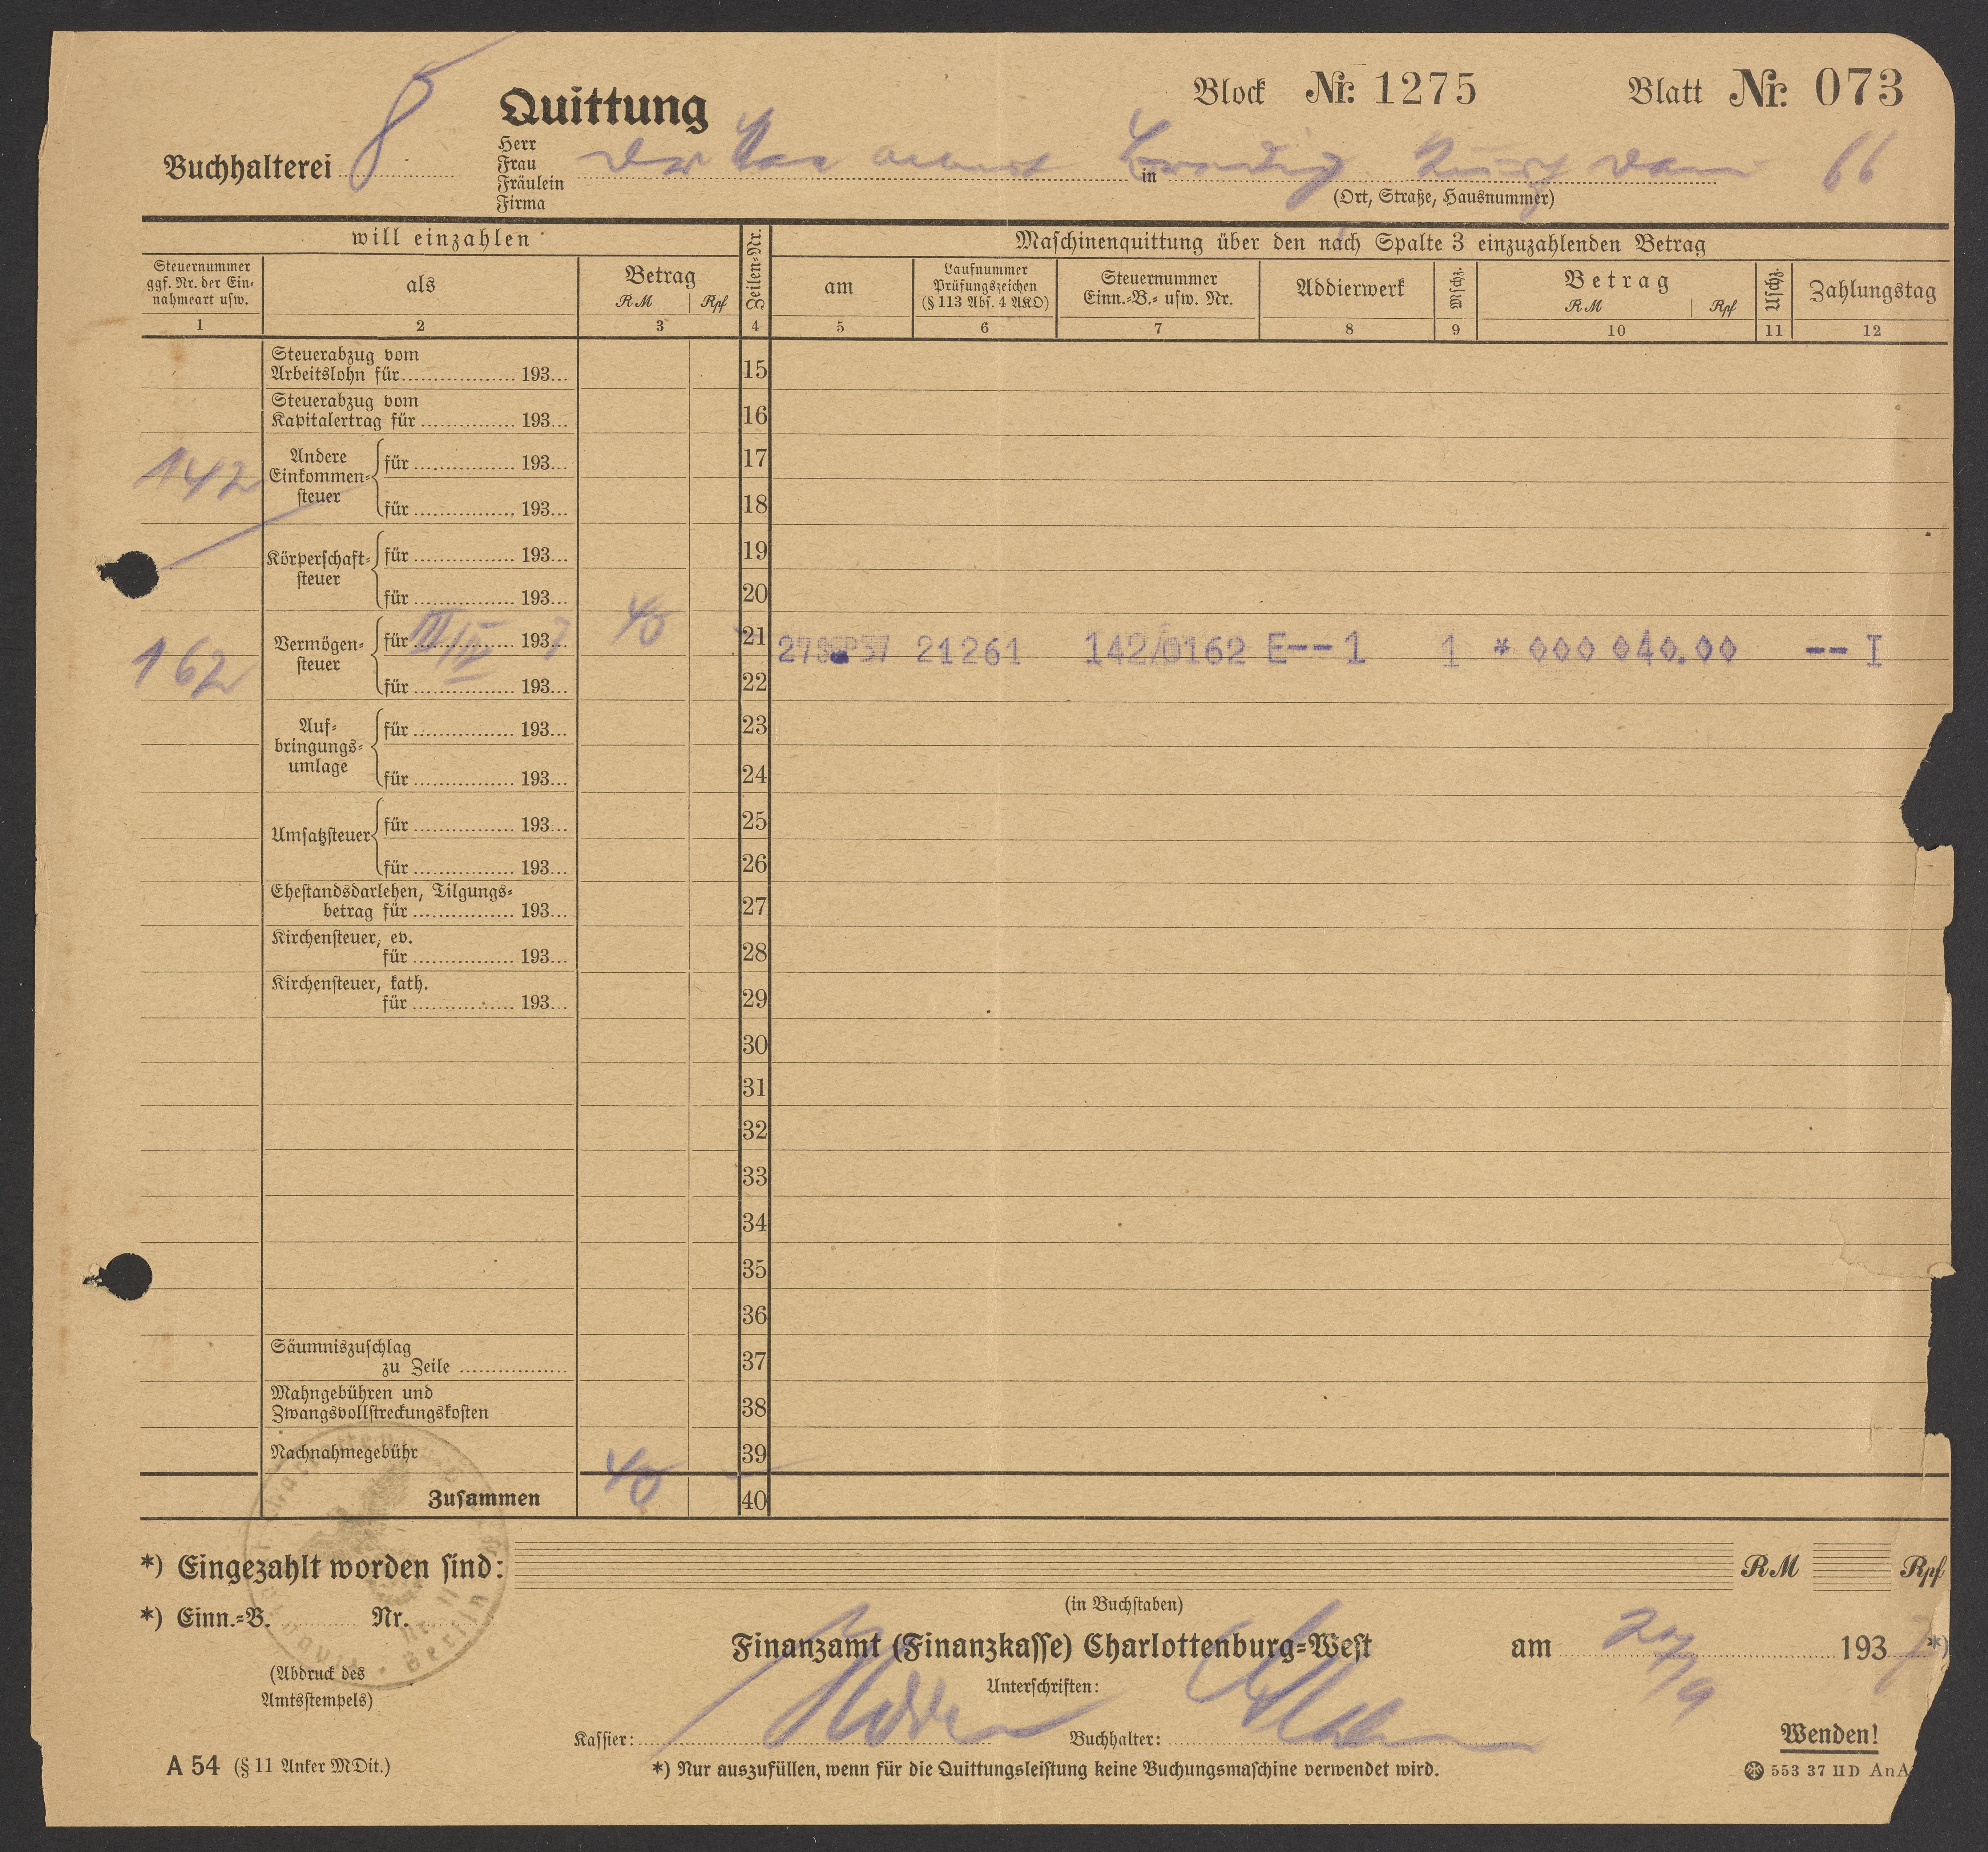 8
Quittung
Block Nr. 1275 Blatt Nr. 073
Buchhalterei
Herr
Frau
Fräulein
Firma
in 66
(Ort, Straße, Hausnummer)
will einzahlen
Zeilen-Nr.
Maschinenquittung über den nach Spalte 3 einzuzahlenden Betrag
Steuernummer
ggf. Nr. der Ein-
nahmeart usw.
als
Betrag
RM Rpf
am
Laufnummer
Prüfungszeichen
(§ 113 Abs. 4 AKO)
Steuernummer
Einn.-B.- usw. Nr.
Addierwerk
Mschz.
Betrag
RM Rpf
Uschz.
Zahlungstag
1 2 3 4 5 6 7 8 9 10 11 12
Steuerabzug vom
Arbeitslohn für 193 15
Steuerabzug vom
Kapitalertrag für 193 16
142
Andere
Einkommen-
steuer
für 193 17
für 193 18
Körperschaft-
steuer
für 193 19
für 193 20
162
Vermögen-
steuer
für III/IV 1937 40 21 27 SEP 37 21261 142/0162 E--1 1 * 000 040.00 -- I
für 193 22
Auf-
bringungs-
umlage
für 193 23
für 193 24
Umsatzsteuer
für 193 25
für 193 26
Ehestandsdarlehen, Tilgungs-
betrag für 193 27
Kirchensteuer, ev.
für 193 28
Kirchensteuer, kath.
für 193 29
30
31
32
33
34
35
36
Säumniszuschlag
zu Zeile 37
Mahngebühren und
Zwangsvollstreckungskosten 38
Nachnahmegebühr 39
Zusammen 40 40
*) Eingezahlt worden sind: RM Rpf
(in Buchstaben)
*) Einn.-B. Nr.
Finanzamt (Finanzkasse) Charlottenburg-West am 27/9 1937 *)
(Abdruck des
Amtsstempels)
Unterschriften:
Kassier: Buchhalter:
Wenden!
A 54 (§ 11 Anker MDit.)
*) Nur auszufüllen, wenn für die Quittungsleistung keine Buchungsmaschine verwendet wird.
553 37 II D AnA